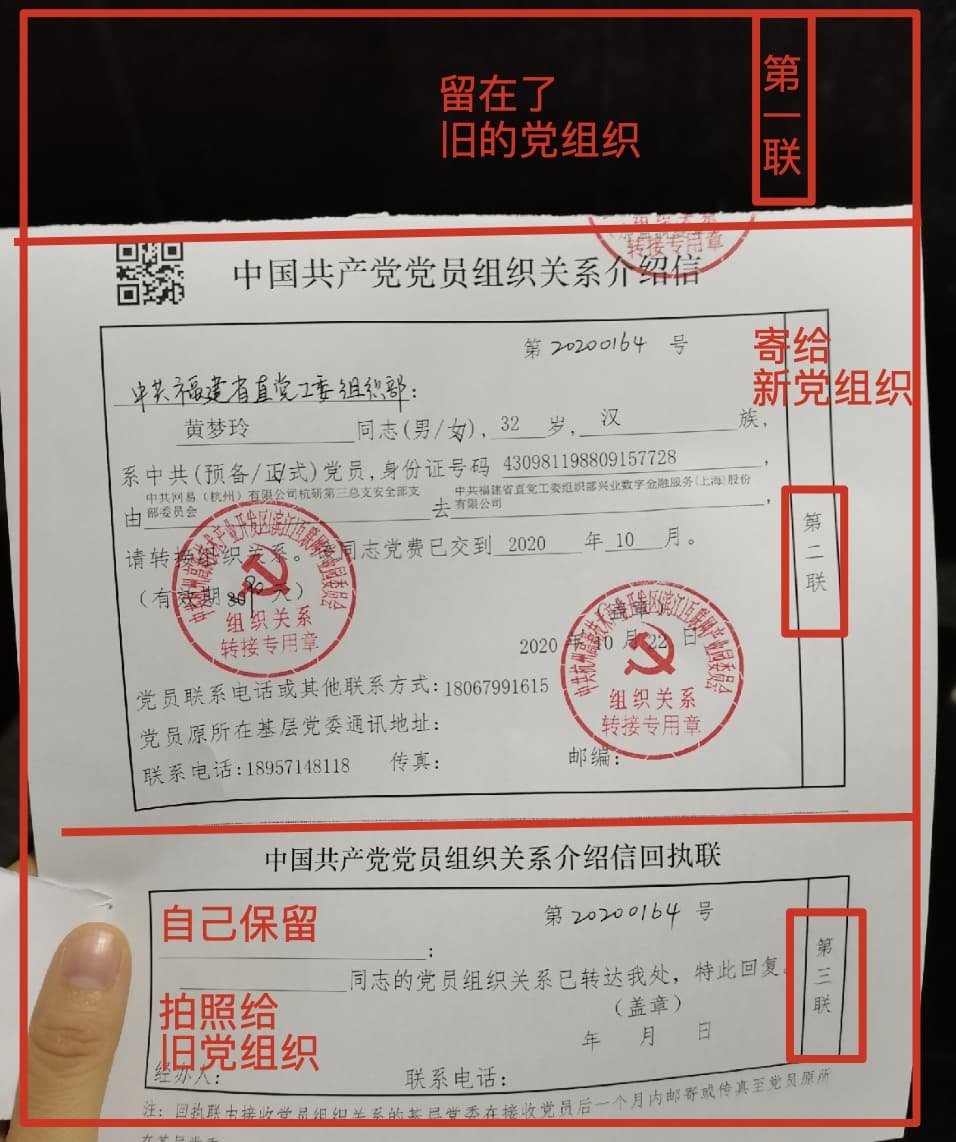 留在了
旧的党组织
第一联
组织关系
转接专用章
中国共产党党员组织关系介绍信
第 20200164 号
寄给
新党组织
中共福建省直党工委组织部:
黄梦玲 同志(男/女), 32 岁, 汉 族,
系中共(预备/正式)党员,身份证号码 430981198809157728,
由 中共网易(杭州)有限公司杭研第三总支安全部支部委员会 去 中共福建省直党工委组织部兴业数字金融服务(上海)股份有限公司,
请转接组织关系。该同志党费已交到 2020 年 10 月。
(有效期 90 天)
(盖章)
2020 年 10 月 22 日
组织关系
转接专用章
组织关系
转接专用章
第二联
党员联系电话或其他联系方式:18067991615
党员原所在基层党委通讯地址:
联系电话:18957148118 传真: 邮编:
中国共产党党员组织关系介绍信回执联
第 20200164 号
自己保留
:
同志的党员组织关系已转达我处,特此回复。
(盖章)
拍照给
旧党组织
年 月 日
经办人: 联系电话:
第三联
注:回执联由接收党员组织关系的基层党委在接收党员后一个月内邮寄或传真至党员原所